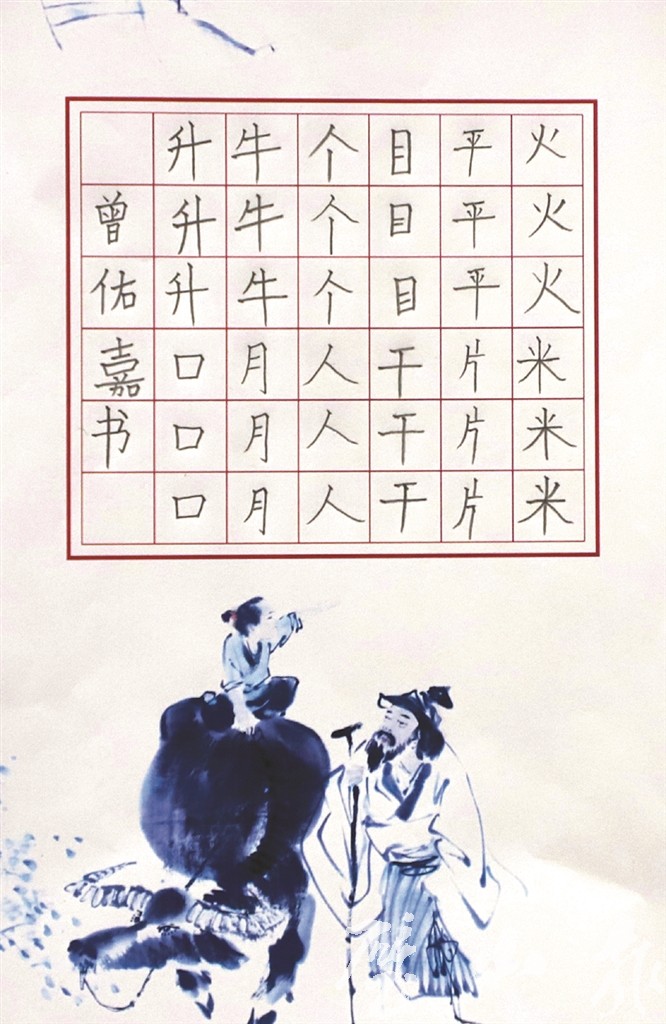 火火火米米米
平平平片片片
目目目干干干
个个个人人人
牛牛牛月月月
升升升口口口
曾佑嘉书